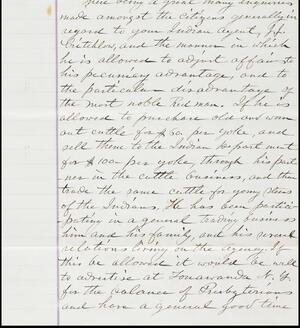 There being a great many inquiries
made amongst the citizens generally in
regard to your Indian Agent, J.J.
Critchlow, and the manner in which
he is allowed to adjust affairs to
his pecuniary advantage, and to
the particular disadvantage of
the most noble Red man. If he is
allowed to purchase old and worn
out cattle for $60, per yoke, and
sell them to the Indian Department
for $100 per yoke, through his part
ner in the cattle business, and then
trade the same cattle for young steers
of the Indians, He has been partici
pating in a general trading business
him and his family, and his several
relations living on the agency. If
this be allowed it would be well
to advertise at Tonawanda N.Y.
for the balance of Presbyterians
and have a general good time